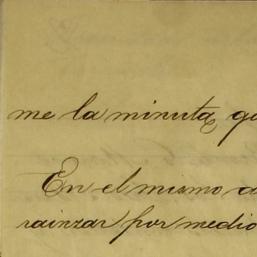 me la minuta, qu
En el mismo a
rainzar por medio